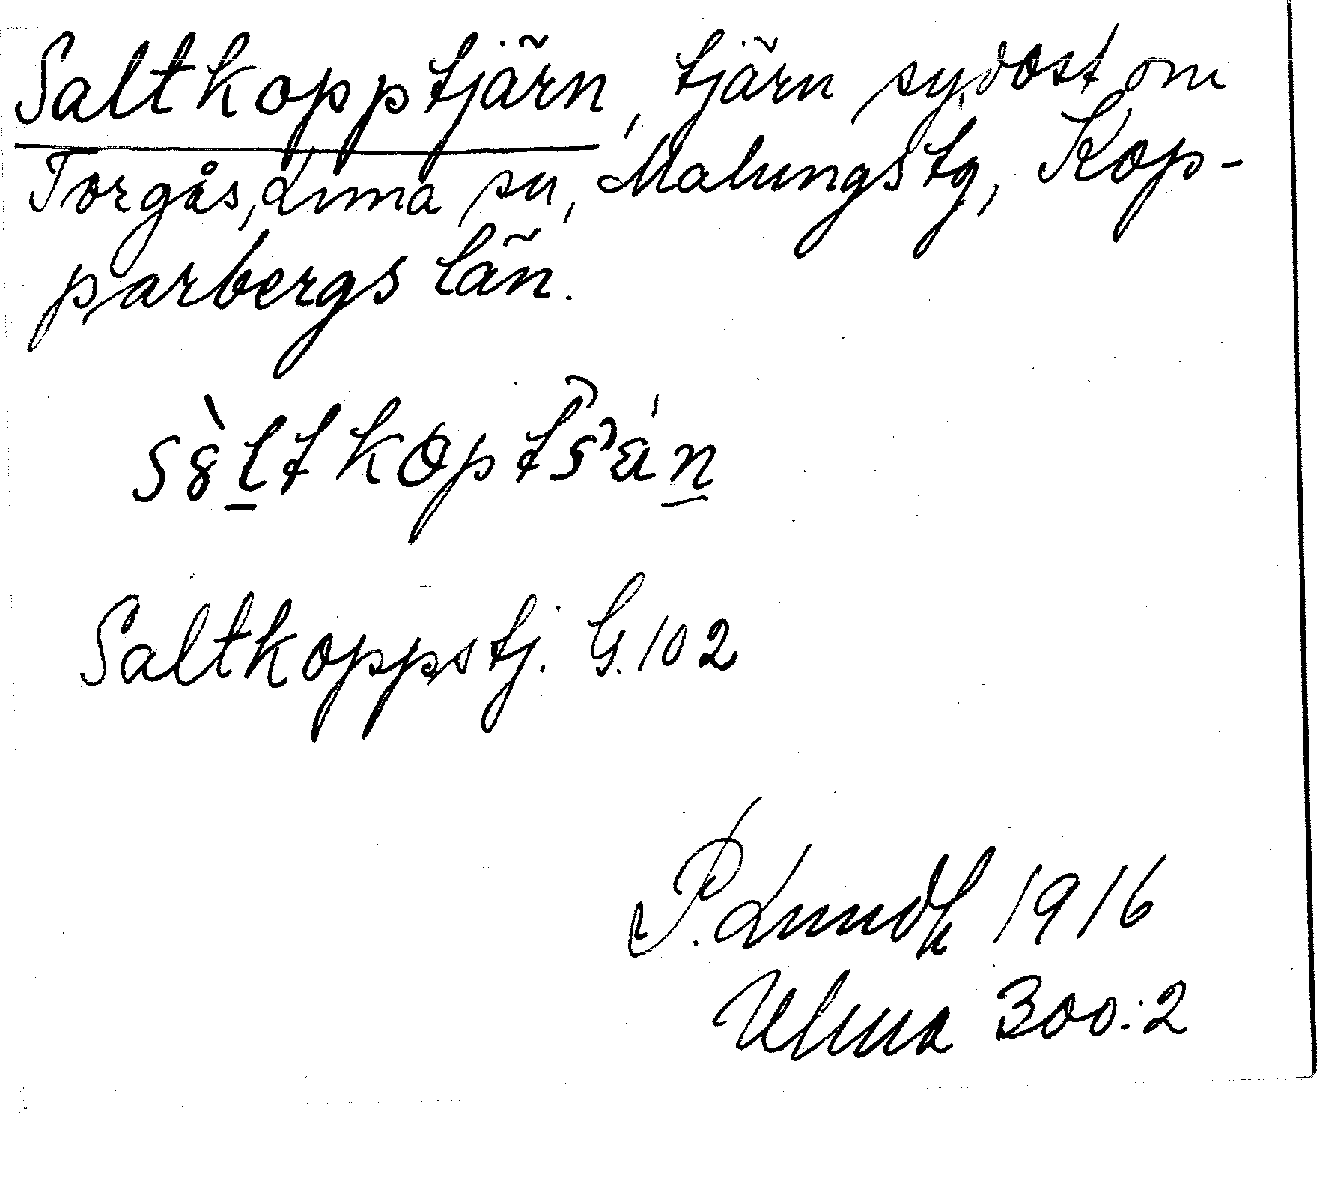 Saltkopptjärn, tjärn sydost om
Torgås, Lima sn, Malungs tg, Kop-
parbergs län.
Saltkoppstj. G. 102
P. Lundk 1916
Ulma 300:2